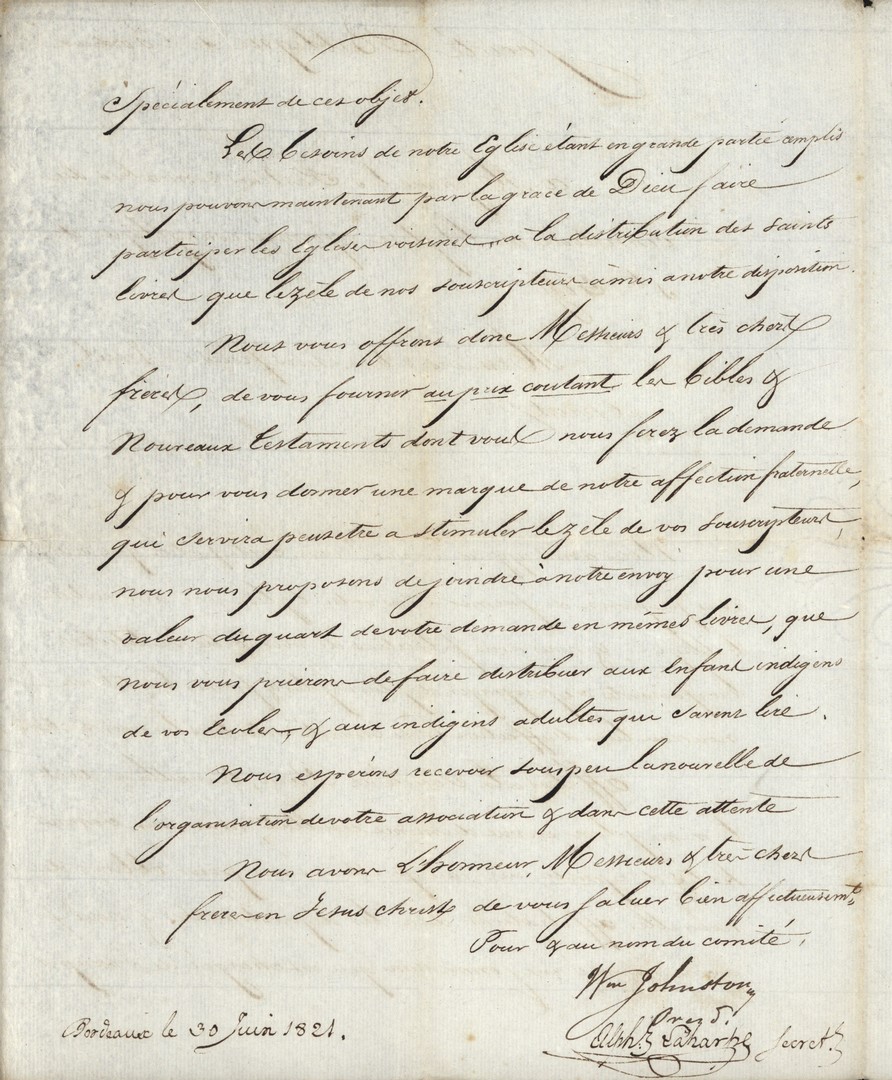 Spécialement de ces objes.
Les besoins de notre Eglise étant en grande partie emplis
nous pouvons maintenant par la grace de Dieu faire
participer les Eglises voisines, a la distribution des Saints
livres que le zèle de nos souscripteurs à mis a notre disposition.
Nous vous offrons donc Messieurs & très chers
frères, de vous fournir au prix coutant les bibles &
Nouveaux testaments dont vous nous ferez la demande
& pour vous donner une marque de notre affection fraternelle,
qui servira peutetre a stimuler le zèle de vos souscripteurs,
nous nous proposons de joindre à notre envoy pour une
valeur du quart de votre demande en mêmes livres, que
nous vous prierons de faire distribuer aux Enfans indigens
de vos Ecoles, & aux indigens adultes qui savent lire.
Nous espérons recevoir sous peu la nouvelle de
l'organisation de votre association & dans cette attente
Nous avons L'honneur, Messieurs & très chers
freres en Jesus Christ de vous Saluer bien affectueusemt,
Pour & au nom du comité,
Wm Johnston
Presd.
Laharpe Secret.
Bordeaux le 30 Juin 1821.